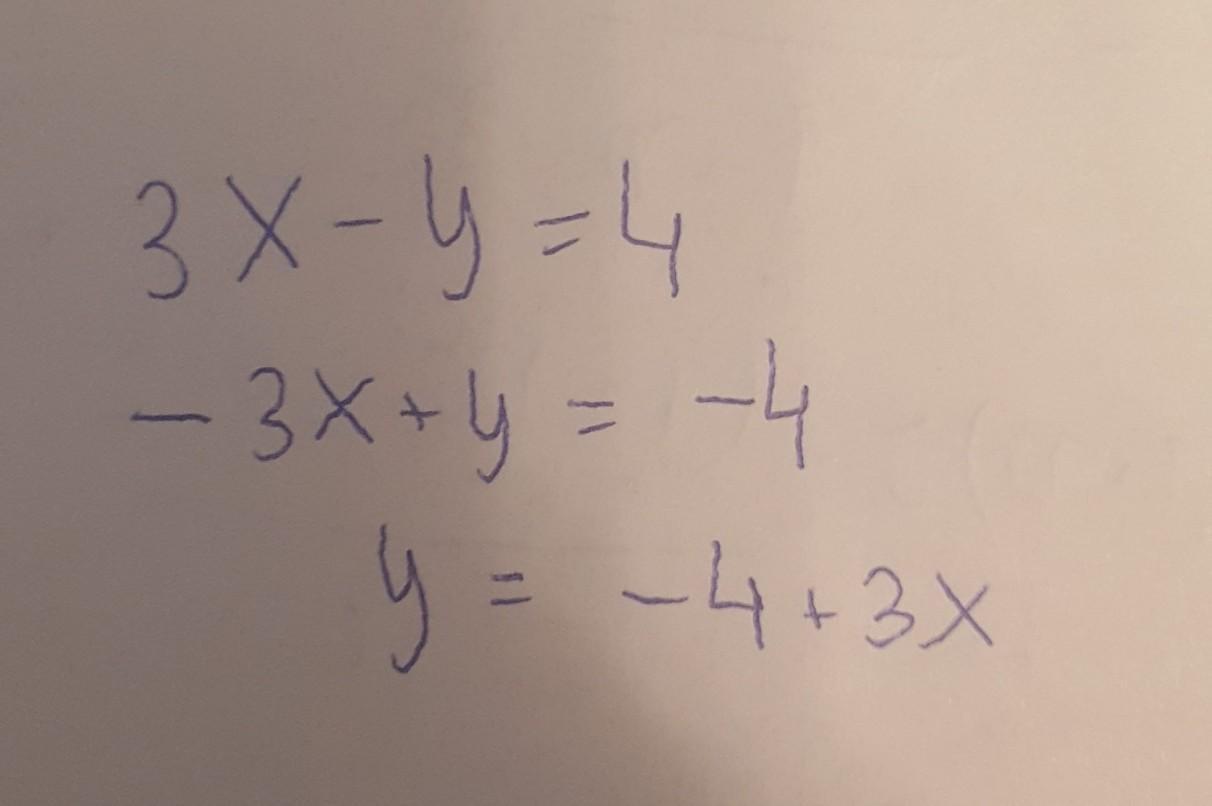 3x - y = 4
- 3x + y = -4
y = -4 + 3x